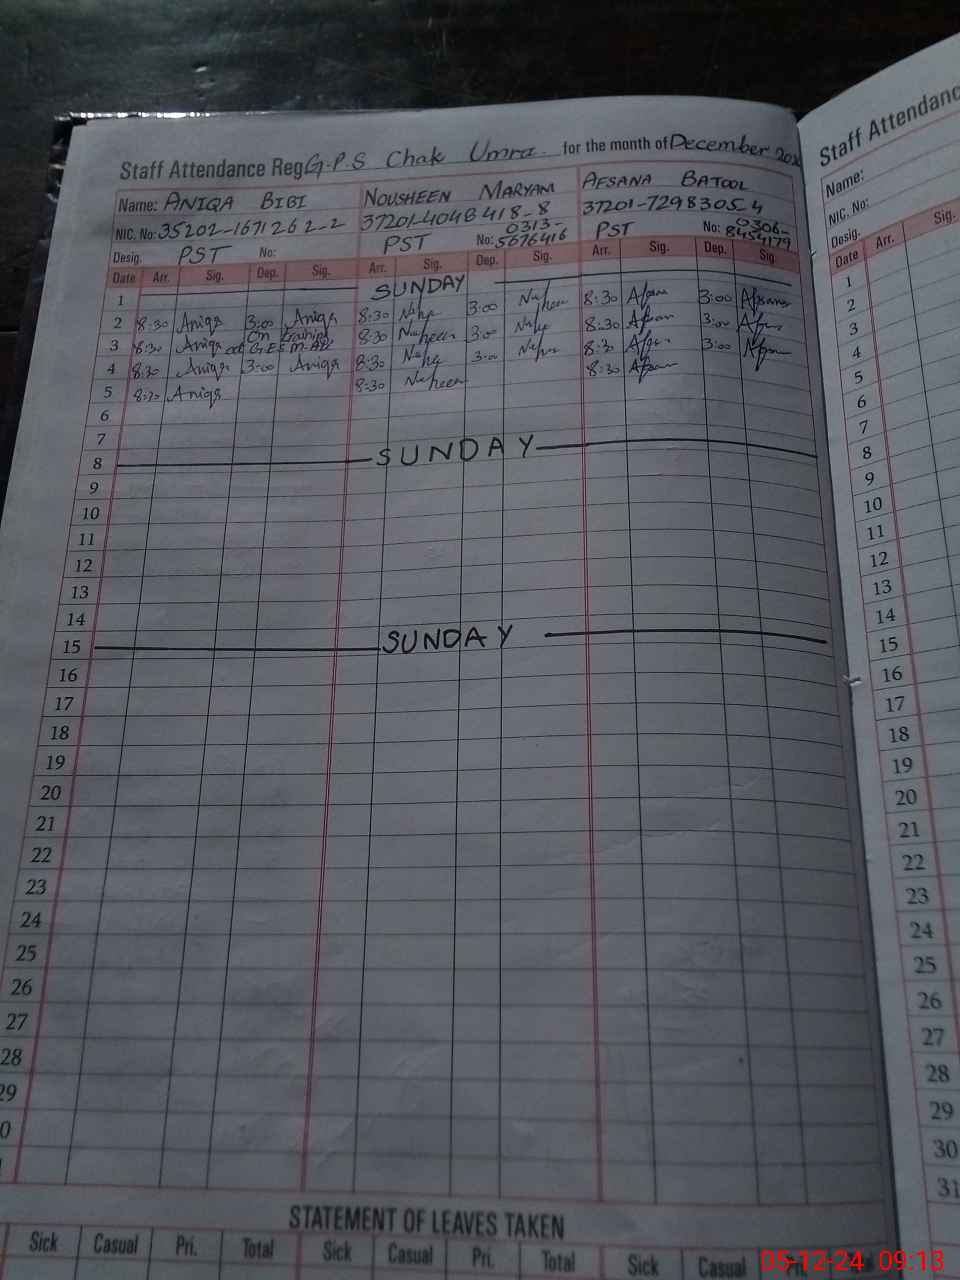 Staff Attendance Reg G.P.S Chak Umra. for the month of December
Name: ANIQA BIBI NOUSHEEN MARYAM AFSANA BATOOL
NIC. No: 35202-1671262-2 37201-4048418-8 37201-7298305-4
Desig. PST No: PST No: 0313-5676416 PST No: 0306-8454179
Date Arr. Sig. Dep. Sig. Arr. Sig. Dep. Sig. Arr. Sig. Dep. Sig.
1 SUNDAY
2 8:30 Aniqa 3:00 Aniqa 8:30 3:00 8:30 Afsana 3:00 Afsana
3 8:30 Aniqa On training at G.E.S 8:30 Nosheen 3:00 8:30 3:00
4 8:30 Aniqa 3:00 Aniqa 8:30 3:00 8:30 3:00
5 8:30 Aniqa 8:30 Nosheen 8:30
6
7
8 SUNDAY
9
10
11
12
13
14
15 SUNDAY
16
17
18
19
20
21
22
23
24
25
26
27
28
29
0
STATEMENT OF LEAVES TAKEN
Sick Casual Pri. Total Sick Casual Pri. Total Sick Casual
Staff Attendanc
Name:
NIC. No:
Desig.
Date Arr. Sig.
1
2
3
4
5
6
7
8
9
10
11
12
13
14
15
16
17
18
19
20
21
22
23
24
25
26
27
28
29
30
31
05-12-24 09:13